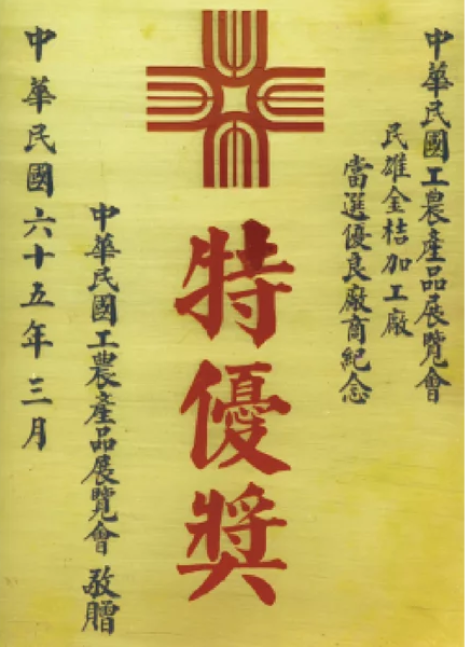 中華民國工農產品展覽會
民雄金桔加工廠
當選優良廠商紀念
特優獎
中華民國工農產品展覽會 敬贈
中華民國六十五年三月